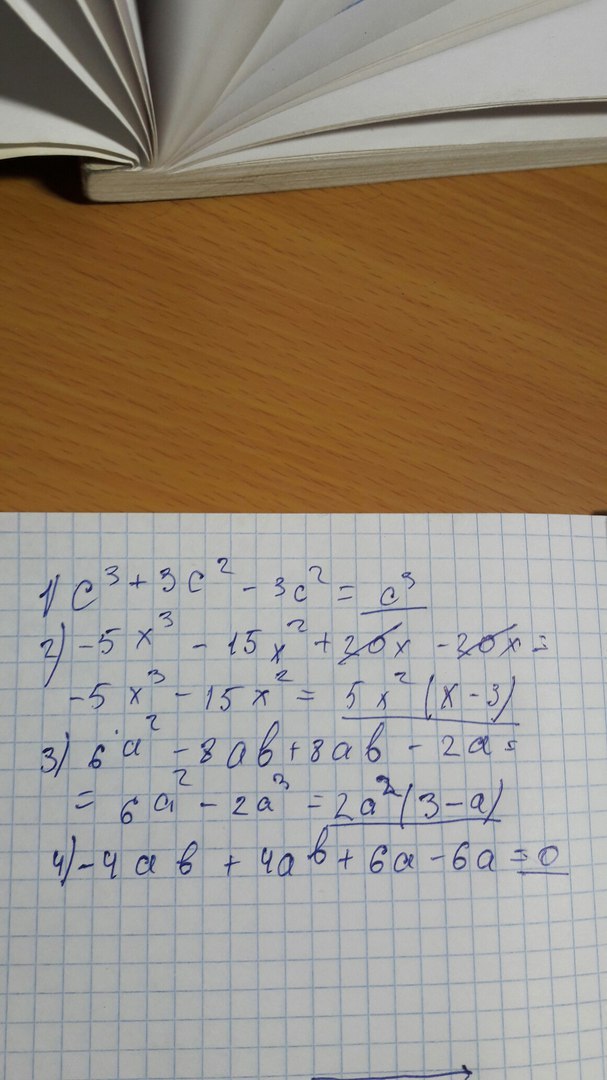 1) c³ + 3c² - 3c² = c³
2) -5x³ - 15x² + 20x - 20x =
-5x³ - 15x² = 5x² (x - 3)
3) 6a² - 8ab + 8ab - 2a =
= 6a² - 2a³ = 2a² (3 - a)
4) -4ab + 4ab + 6a - 6a = 0